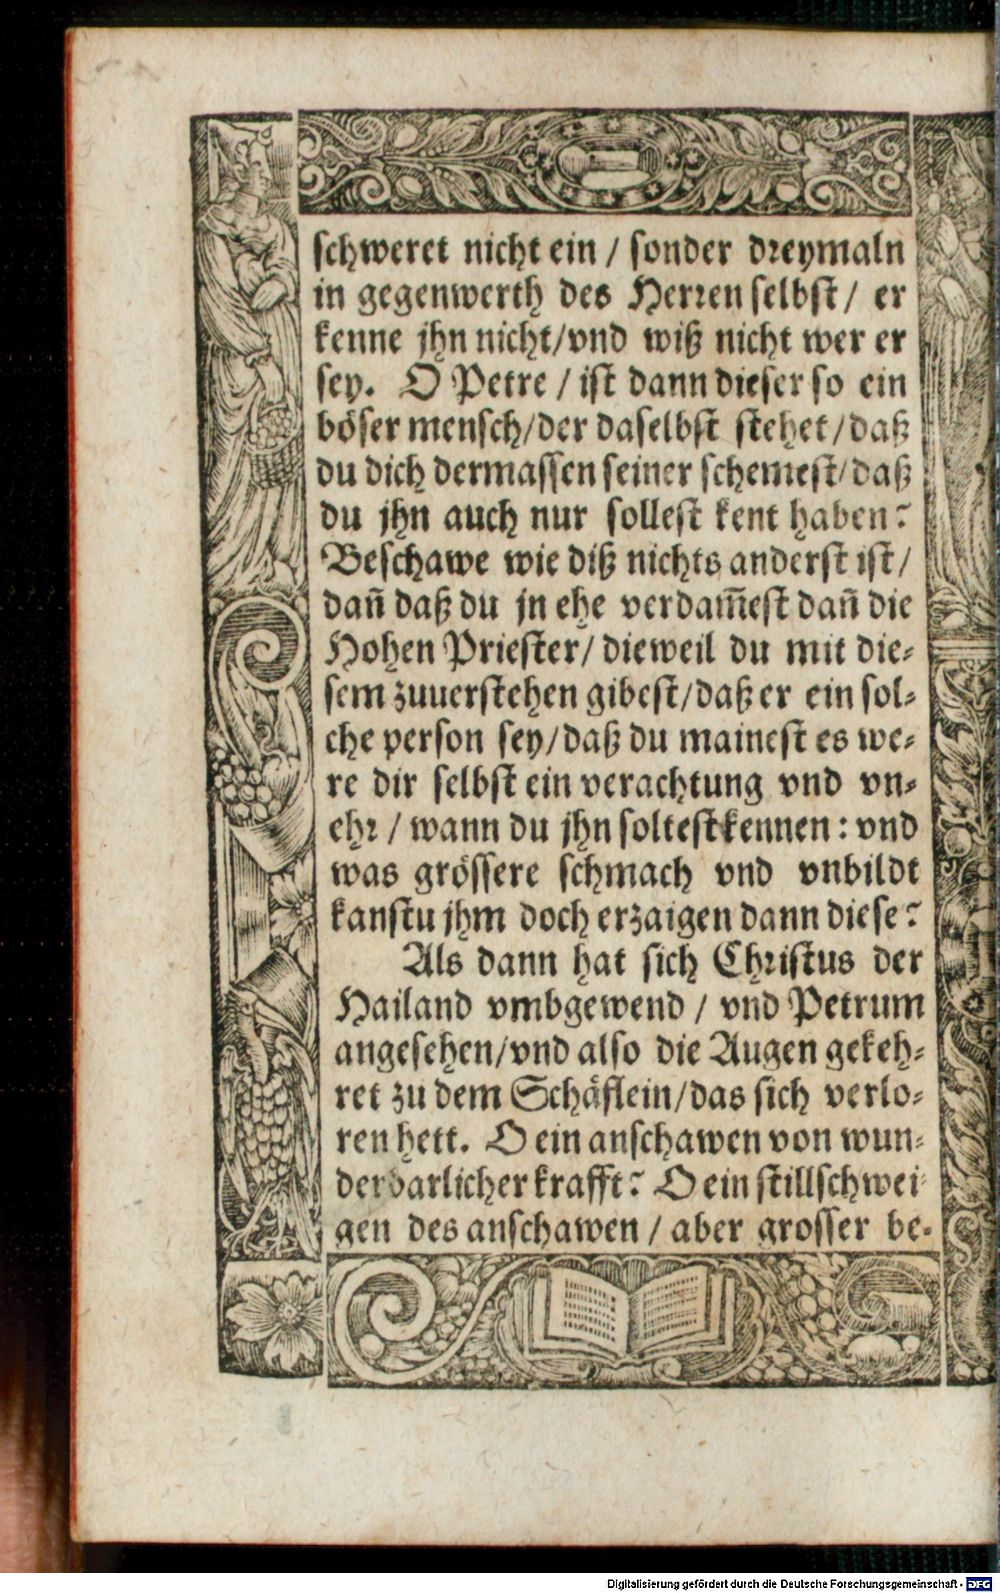 schweret nicht ein / sonder dreymaln
in gegenwerth des Herren selbst / er
kenne jhn nicht / vnd wiß nicht wer er
sey. O Petre / ist dann dieser so ein
böser mensch / der daselbst stehet / daß
du dich dermassen seiner schemest / daß
du jhn auch nur sollest kent haben?
Beschawe wie diß nichts anderst ist /
dañ daß du jn ehe verdam̃est dañ die
Hohen Priester / dieweil du mit die-
sem zuuerstehen gibest / daß er ein sol-
che person sey / daß du mainest es we-
re dir selbst ein verachtung vnd vn-
ehr / wann du jhn soltest kennen: vnd
was grössere schmach vnd vnbildt
kanstu jhm doch erzaigen dann diese?
Als dann hat sich Christus der
Hailand vmbgewend / vnd Petrum
angesehen / vnd also die Augen gekeh-
ret zu dem Schäflein / das sich verlo-
ren hett. O ein anschawen von wun-
derbarlicher krafft? O ein stillschwei-
gen des anschawen / aber grosser be-
Digitalisierung gefördert durch die Deutsche Forschungsgemeinschaft - DFG